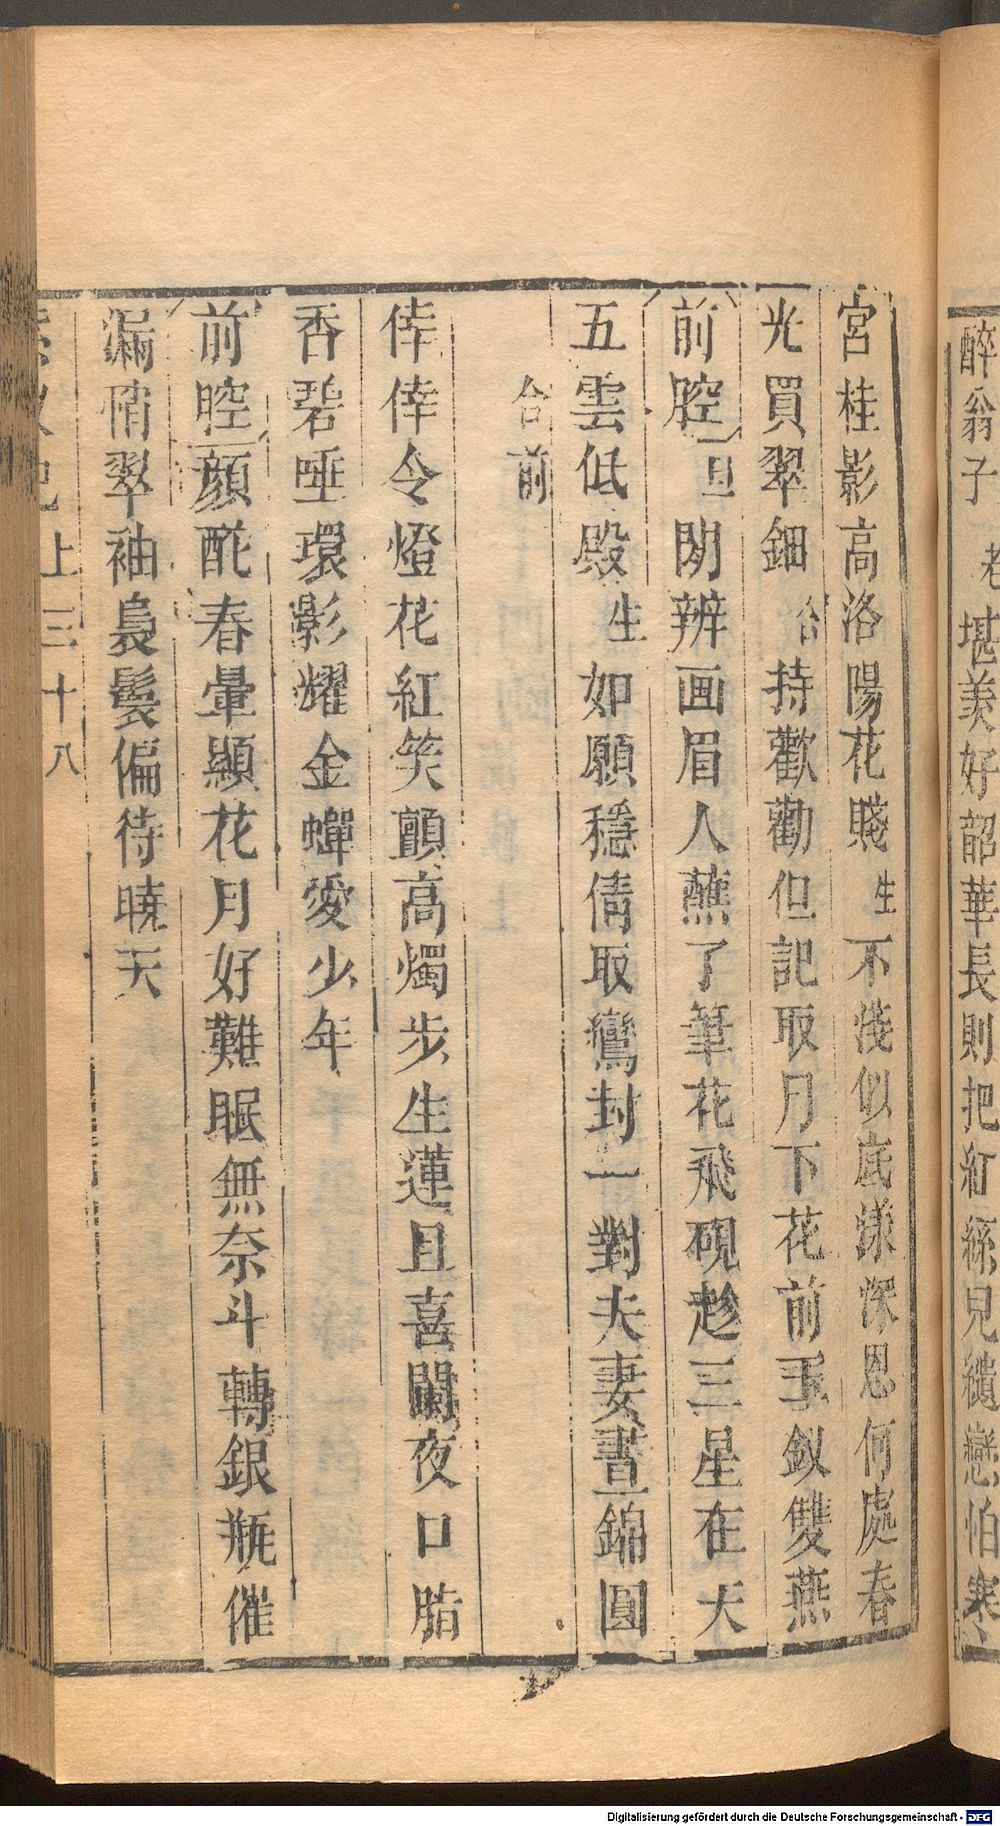 醉翁子 老 堪羡好韶華長則把紅絲兒繾戀怕寒
宮桂影高洛陽花賤 生 不淺似底漾深恩何處春
光買翠鈿 合 持歡勸但記取月下花前玉釵雙燕
前腔 旦 閑辨画眉人蘸了筆花飛硯趁三星在天
五雲低殿 生 如願穩倩取鸞封一對夫妻晝錦圓
合前
倖倖令燈花紅笑顫高燭步生蓮且喜闌夜口脂
香碧唾環影耀金蟬愛少年
前腔顏酡春暈顯花月好難眠無奈斗轉銀瓶催
漏悄翠袖裊鬟偏待曉天
上 三十八
Digitalisierung gefördert durch die Deutsche Forschungsgemeinschaft - DFG